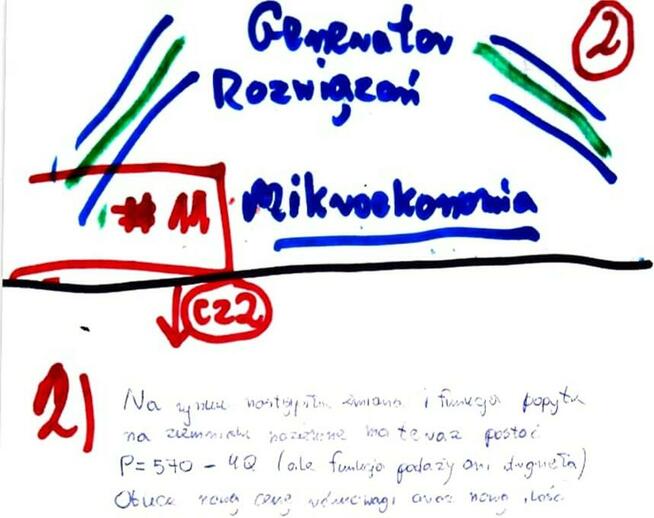 Generator
Rozwiązań
2
# 11
Mikroekonomia
cz2
2)
Na rynku nastąpiła zmiana i funkcja popytu
na ziemniaki ma teraz postać
P = 570 - 4Q (ale funkcja podaży ani drgnęła)
nową cenę równowagi oraz nową ilość